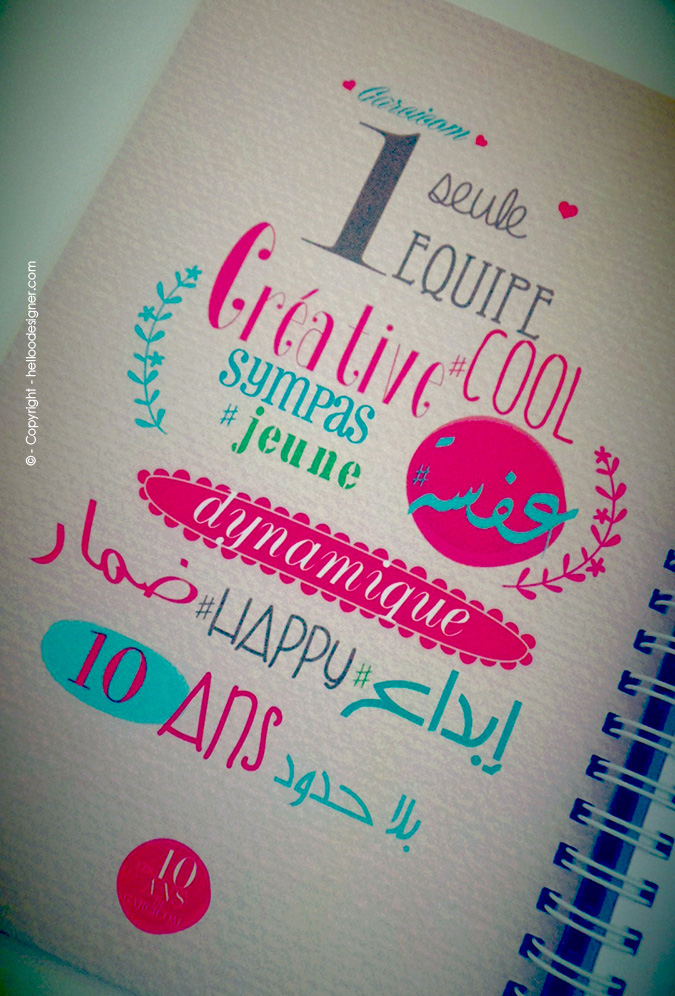 Carvicom
1 seule
EQUIPE
Créative #COOL
sympas
#jeune
#عفسة
dynamique
ضمار #HAPPY #إبداع
10 ANS بلا حدود
10
ANS
© - Copyright - helloodesigner.com